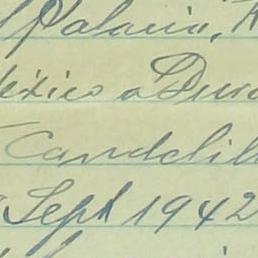 Palacio,
México a Dura
Candelil
Sept 1942